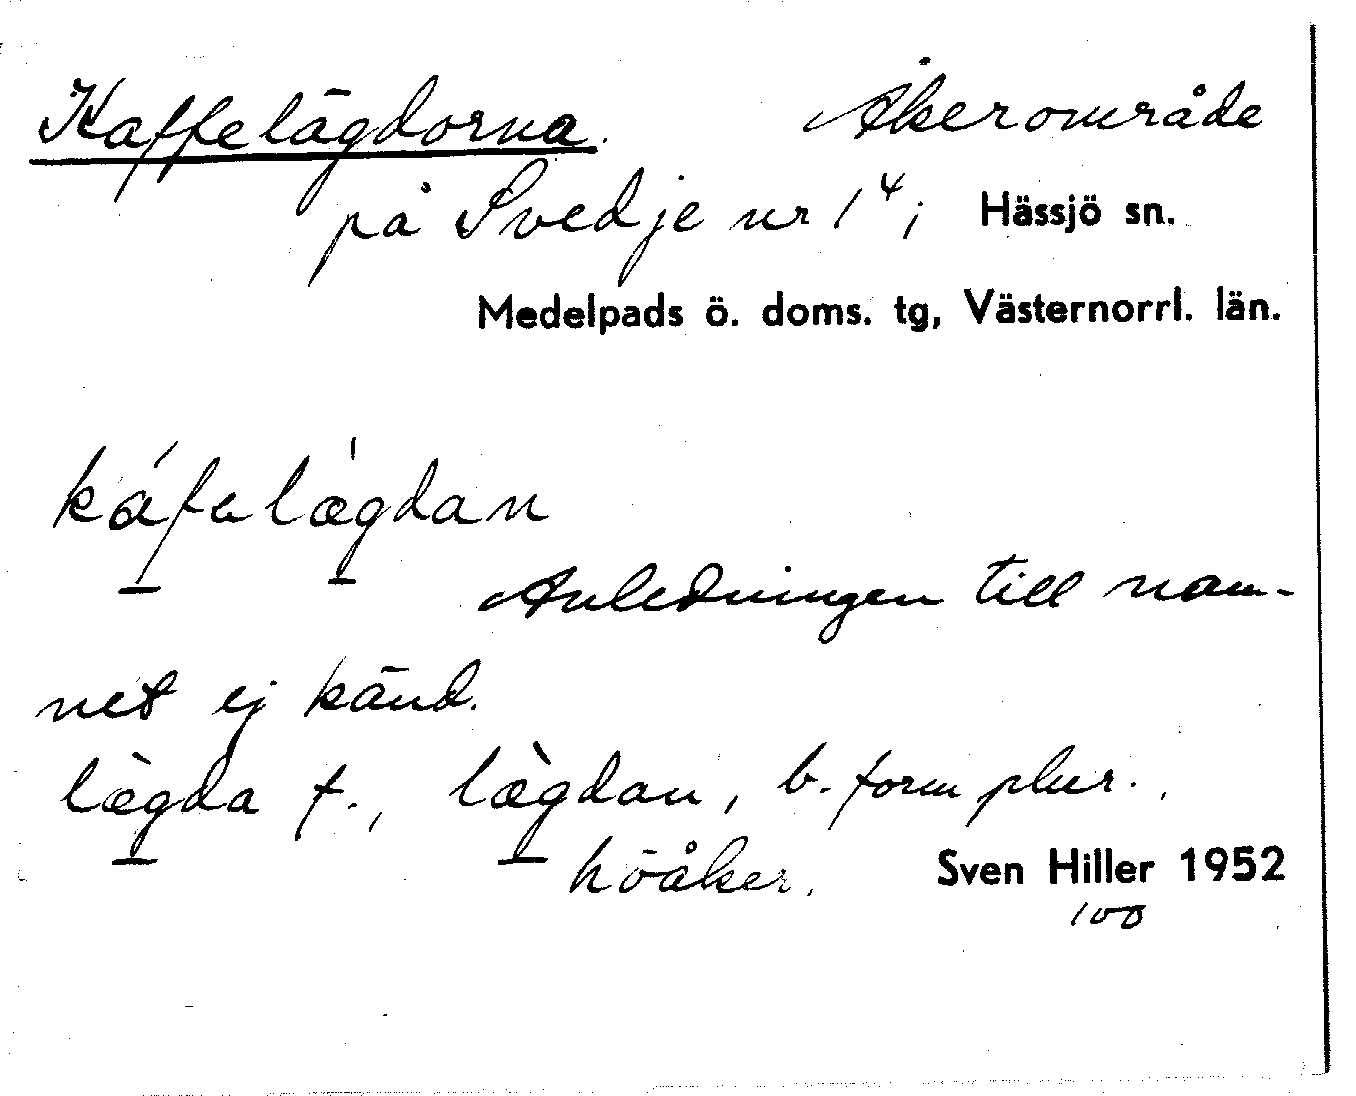 Kaffelägdorna. Åkerområde
på Svedje nr 1⁴; Hässjö sn.
Medelpads ö. doms. tg, Västernorrl. län.
káfelæ̀gdan
Anledningen till nam-
net ej känd.
læ̀gda f., læ̀gdan, b. form plur.,
höåker. Sven Hiller 1952
100